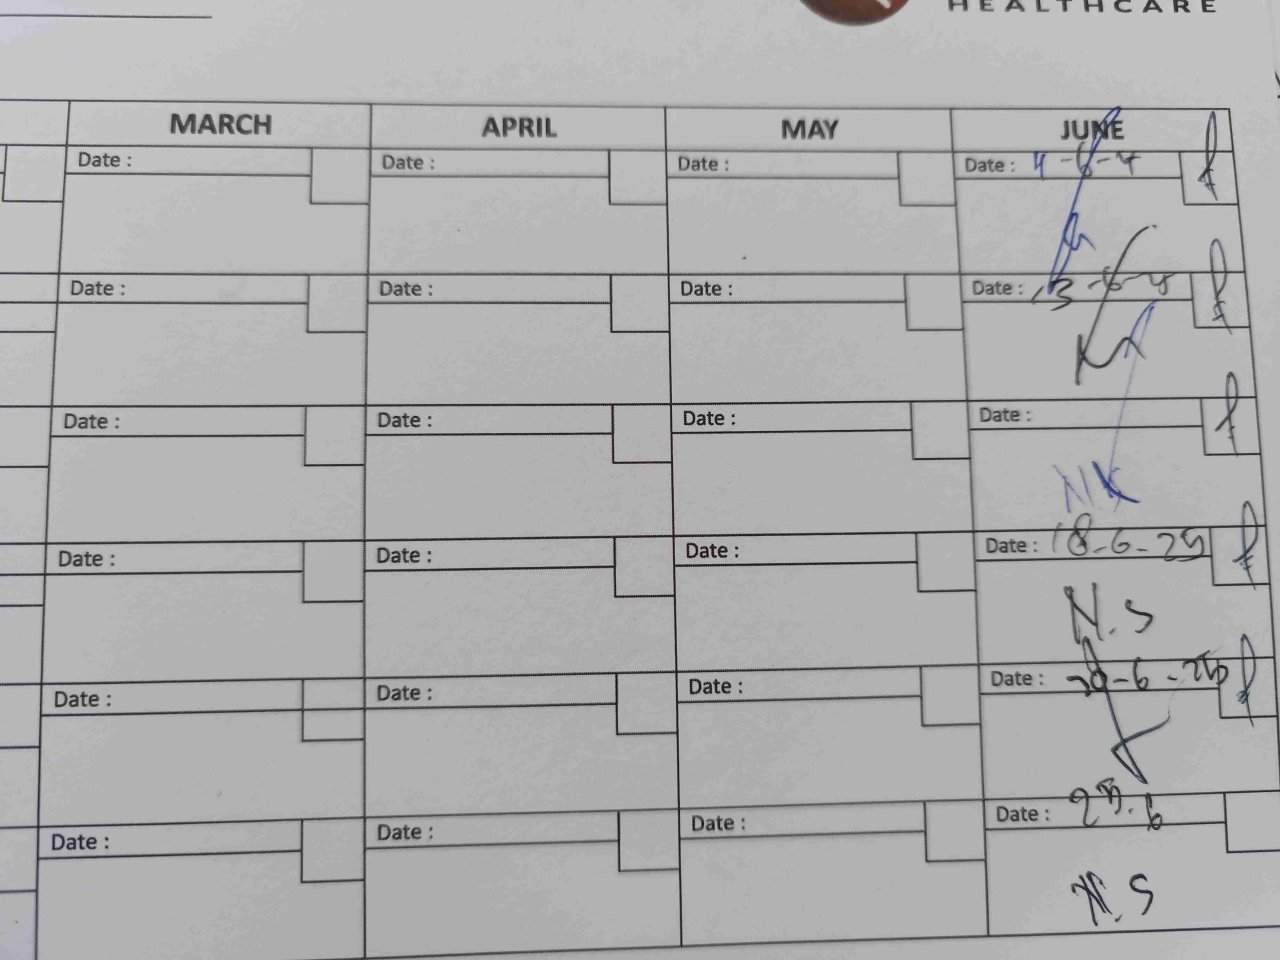 HEALTHCARE
MARCH APRIL MAY JUNE
Date : Date : Date : Date : 4-6-4
Date : Date : Date : Date : 13-6-4
Date : Date : Date : Date :
NK
Date : Date : Date : Date : 18-6-25
N.S
Date : Date : Date : Date :
Date : Date : Date : Date : 23.6
N.S